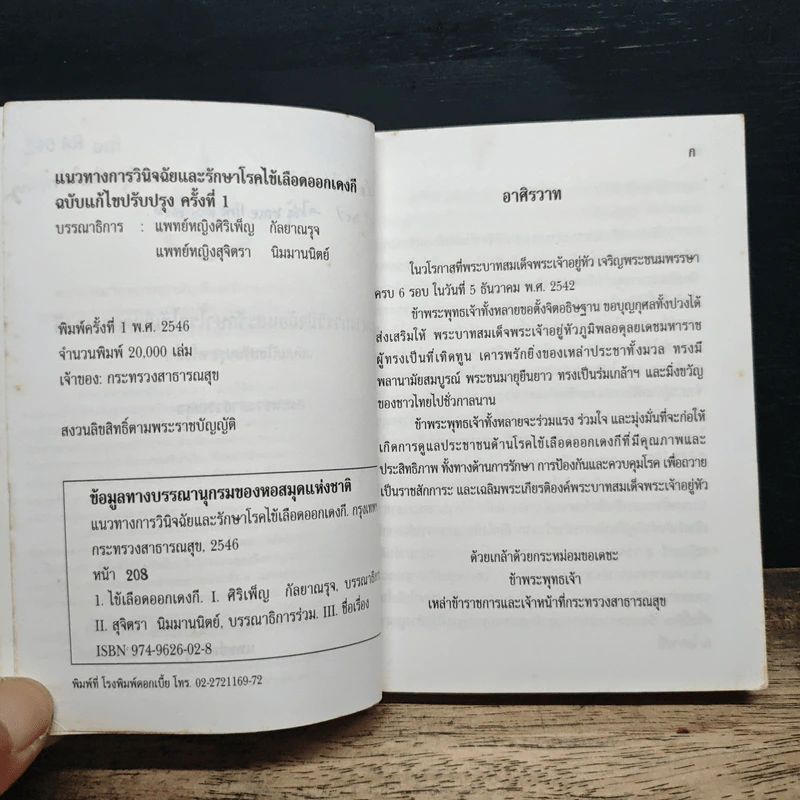 แนวทางการวินิจฉัยและรักษาโรคไข้เลือดออกเดงกี
ฉบับแก้ไขปรับปรุง ครั้งที่ 1
บรรณาธิการ : แพทย์หญิงศิริเพ็ญ กัลยาณรุจ
แพทย์หญิงสุจิตรา นิมมานนิตย์
พิมพ์ครั้งที่ 1 พ.ศ. 2546
จำนวนพิมพ์ 20,000 เล่ม
เจ้าของ: กระทรวงสาธารณสุข
สงวนลิขสิทธิ์ตามพระราชบัญญัติ
ข้อมูลทางบรรณานุกรมของหอสมุดแห่งชาติ
แนวทางการวินิจฉัยและรักษาโรคไข้เลือดออกเดงกี.
กระทรวงสาธารณสุข, 2546
หน้า 208
1. ไข้เลือดออกเดงกี. I. ศิริเพ็ญ กัลยาณรุจ,
II. สุจิตรา นิมมานนิตย์, บรรณาธิการร่วม. III. ชื่อเรื่อง
ISBN 974-9626-02-8
พิมพ์ที่ โรงพิมพ์ดอกเบี้ย โทร. 02-2721169-72
ก
อาศิรวาท
ในวโรกาสที่พระบาทสมเด็จพระเจ้าอยู่หัว เจริญพระชนมพรรษา
ครบ 6 รอบ ในวันที่ 5 ธันวาคม พ.ศ. 2542
ข้าพระพุทธเจ้าทั้งหลายขอตั้งจิตอธิษฐาน ขอบุญกุศลทั้งปวงได้
ส่งเสริมให้ พระบาทสมเด็จพระเจ้าอยู่หัวภูมิพลอดุลยเดชมหาราช
ผู้ทรงเป็นที่เทิดทูน เคารพรักยิ่งของเหล่าประชาทั้งมวล ทรงมี
พลานามัยสมบูรณ์ พระชนมายุยืนยาว ทรงเป็นร่มเกล้าฯ และมิ่งขวัญ
ของชาวไทยไปชั่วกาลนาน
ข้าพระพุทธเจ้าทั้งหลายจะร่วมแรง ร่วมใจ และมุ่งมั่นที่จะก่อให้
เกิดการดูแลประชาชนด้านโรคไข้เลือดออกเดงกีที่มีคุณภาพและ
ประสิทธิภาพ ทั้งทางด้านการรักษา การป้องกันและควบคุมโรค เพื่อถวาย
เป็นราชสักการะ และเฉลิมพระเกียรติองค์พระบาทสมเด็จพระเจ้าอยู่หัว
ด้วยเกล้าด้วยกระหม่อมขอเดชะ
ข้าพระพุทธเจ้า
เหล่าข้าราชการและเจ้าหน้าที่กระทรวงสาธารณสุข